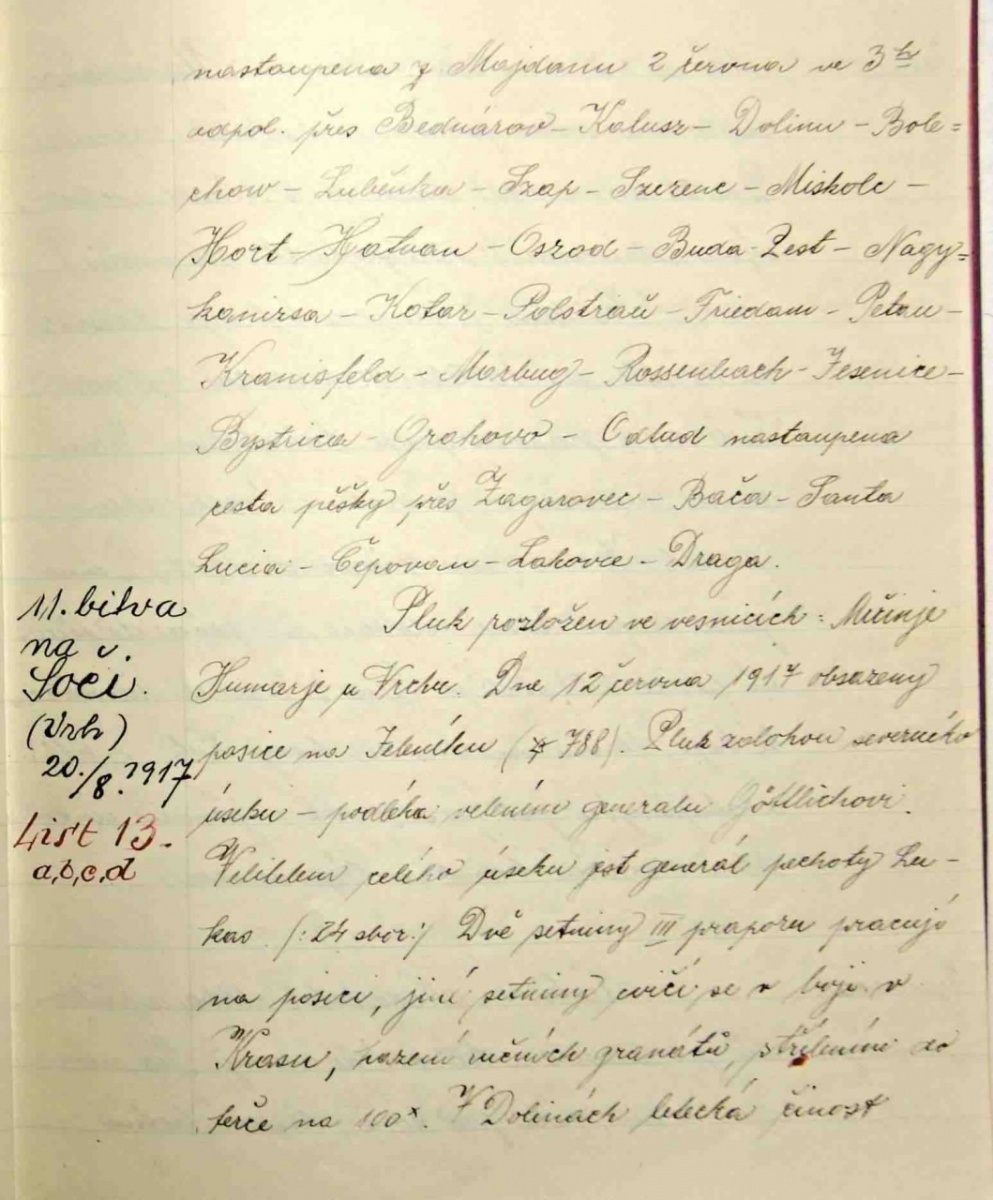 nastoupena z Majdanu 2 června ve 3h
odpol. přes Bednárov – Kalusz – Dolinu – Bole=
chow – Lubénka – Szap – Szerenc – Miskolc –
Hort – Hatvan – Oszod – Buda-Pest – Nagy=
kanizsa – Kotar – Polstrau – Friedam – Petau –
Kranisfeld – Marbug – Rossenbach – Jesenice –
Bystrica – Grahovo – Odtud nastoupena
cesta pěšky přes Zagarovec – Bača – Santa
Lucia – Čepovan – Lokovce – Draga.
Pluk rozložen ve vesnicích: Mižinje
Humarje u Vrchu. Dne 12 června 1917 obsazeny
posice na Jeleníku (788). Pluk zálohou severního
úseku – podléhá velením generalu Göttlichovi.
Velitelem celého úseku jest generál pěchoty Lu–
kas /:24 sbor:/ Dvě setniny III praporu pracují
na posici, jiné setniny cvičí se v boji v
Krasu, házení ručních granátů, střílením do
terče na 100x. V Dolinách letecká činost
11. bitva
na ř.
Soči.
(Vrh)
20./8. 1917
List 13.
a,b,c,d